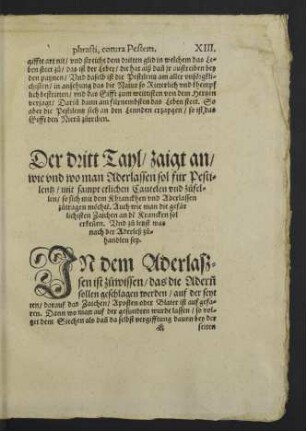 phrasti, contra Pestem. XIII.
gifft nit / und streicht dem dritten glid in welchem das Le-
ben steet zů / das ist der Leber / die hat auß das sie
den paynen / Vnd dasest ist die Pestilentz am aller
chesten / in ansehung das die Natur so Kreincklich vnd schimpf
lich bestritten / vnd das Gifft zum wenigsten von dem Hertzen
verzagt / Darin dann am fürnembsten das Leben steet. So
aber die Pestilentz sich an den Lenden erzaygen / so ist das
Gifft den Niern zůtriben.
Der dritt Tayl / zaigt an /
wie vnd wo man Aderlassen sol fur Pesti-
lentz / mit sampt etlichen Cautelen vnd zůfel-
len / so sich mit den Khranckhen vnd Aderlassen
zůtragen möcht. Auch wie man die gefär
lichsten Zaichen an dē Krancken sol
erkeñen. Vnd zů letst was
nach der Aderleß zů-
handlen sey.
IN dem Aderlaß-
sen ist zůwissen / das die Aderñ
sollen geschlagen werden / auf der seyt
ten / darauf das Zaichen / Aposten oder Blater ist auf gefa-
ren. Dann wo man auf der gesundten wurde lassen / so vol-
get dem Siechen als dañ da selbst vergifftung dauon bey der
seiten